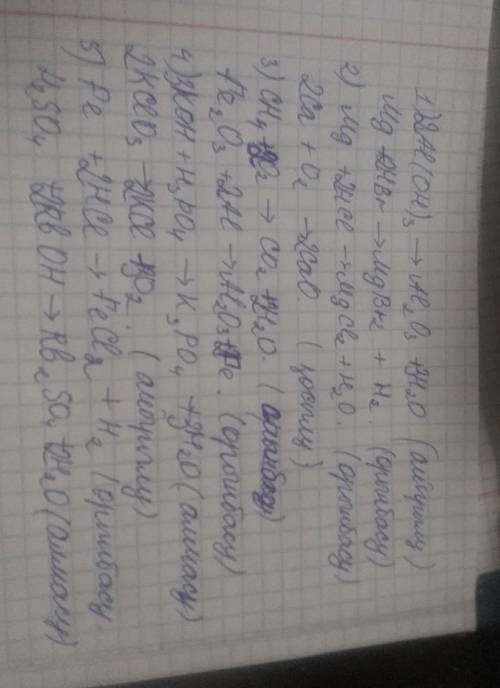 1) 2Al(OH)₃ → Al₂O₃ + 3H₂O (айырылу)
Mg + 2HBr → MgBr₂ + H₂. (орынбасу)
2) Mg + 2HCl → MgCl₂ + H₂O. (орынбасу)
2Ca + O₂ → 2CaO (қосылу)
3) CH₄ + 2O₂ → CO₂ + 2H₂O.
Fe₂O₃ + 2Al → Al₂O₃ + 2Fe. (орынбасу)
4) 3KOH + H₃PO₄ → K₃PO₄ + 3H₂O (алмасу)
2KClO₃ → 2KCl + 3O₂ (айырылу)
5) Fe + 2HCl → FeCl₂ + H₂ (орынбасу.
H₂SO₄ + 2RbOH → Rb₂SO₄ + 2H₂O (алмасу)